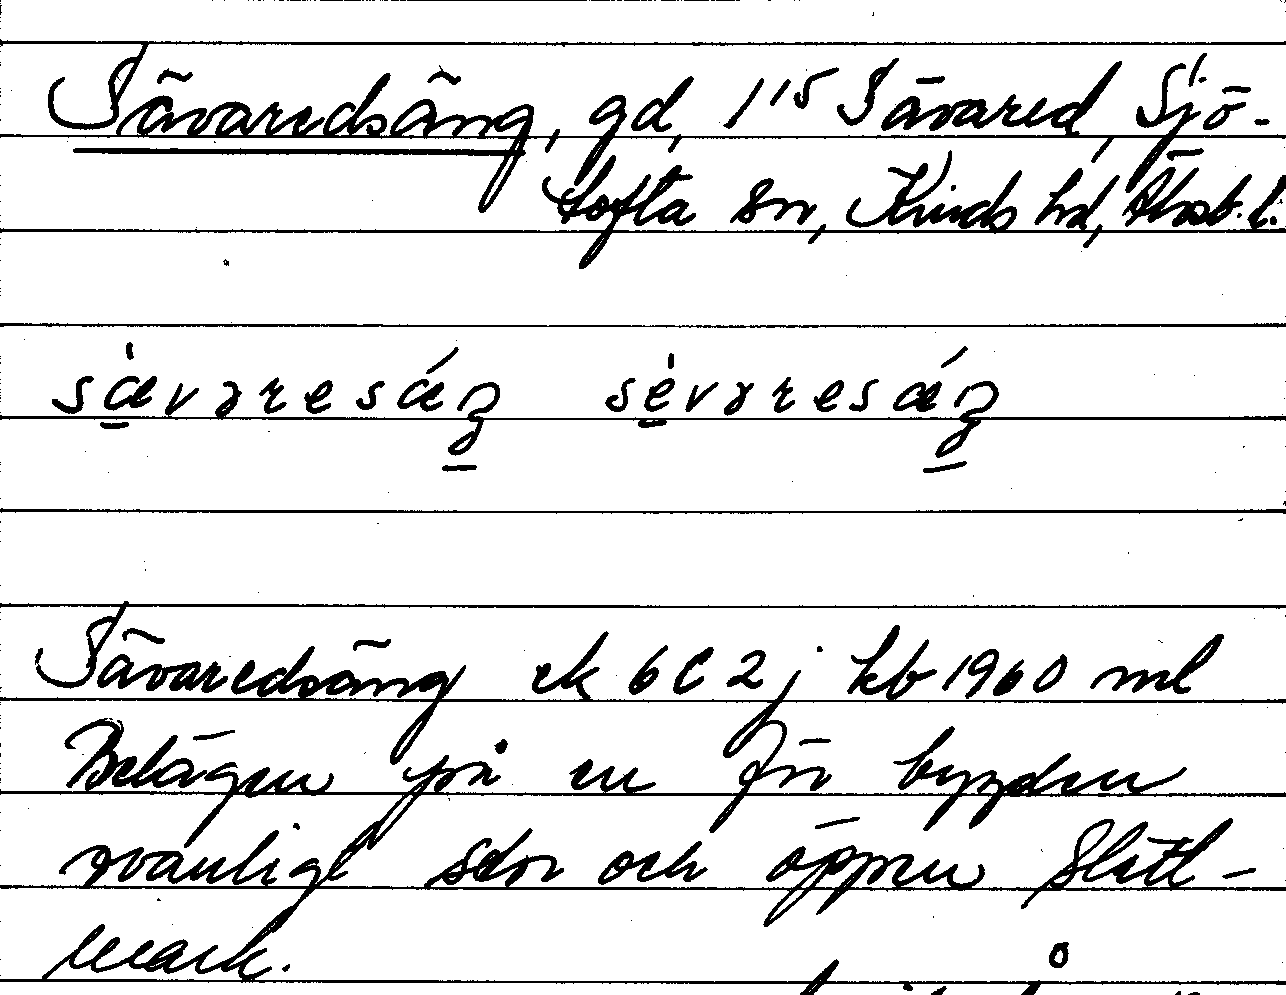 Sävaredsäng, gd, 1/15 Sävared, Sjö-
tofta sn, Kinds hd, Älvsb. l.
sæ̀vɜresǽŋ sèvɜresǽŋ
Sävaredsäng ek 6C2j kb 1960 ml
Belägen på en för bygden
ovanligt stor och öppen slätt-
mark.